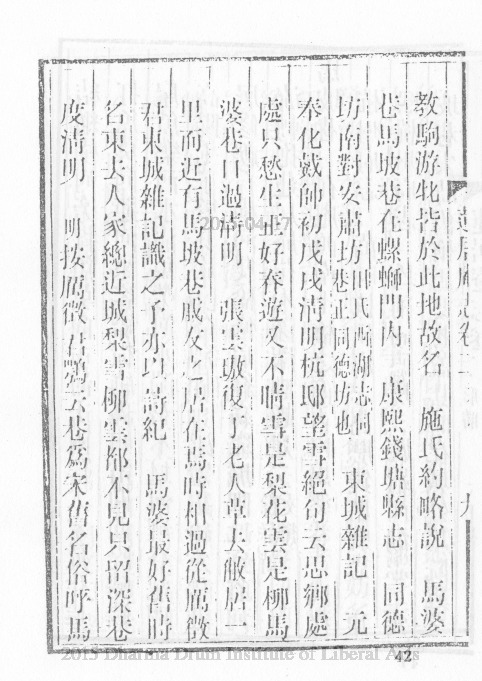 教駒游牝皆於此地故名　施氏約略說　馬婆
巷馬坡巷在螺螄門內　康熙錢塘縣志　同德
坊南對安肅坊田氏西湖志同巷正同德坊也　東城雜記　元
奉化戴帥初戊戌清明杭邸望雪絕句云思鄉處
處只愁生正好春遊又不晴雪是梨花雲是柳馬
婆巷口過清明　張雲璈復丁老人草去敝居一
里而近有馬坡巷戚友之居在焉時相過從鴈徵
君東城雜記識之予亦以詩紀　馬婆最好舊時
名東去人家總近城梨雪柳雲都不見只留深巷
度清明　明按鴈徵君鶚云巷為宋舊名俗呼馬
卷二
九
2015-04-17
2015 Dharma Drum Institute of Liberal Arts
42